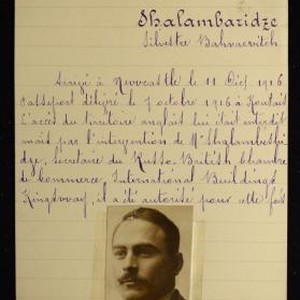 Shalambaridze
Silvestre
Arrivé à Newcastle le 11 Déc. 1916
Passeport délivré le 7 octobre 1916 à
L'accès du territoire anglais lui était interdit
mais par l'intervention de Mr Shalambari
dze, Secrétaire du Russo-British Chambre
de Commerce, International Buildings
Kingsway, il a été autorisé pour cette fois